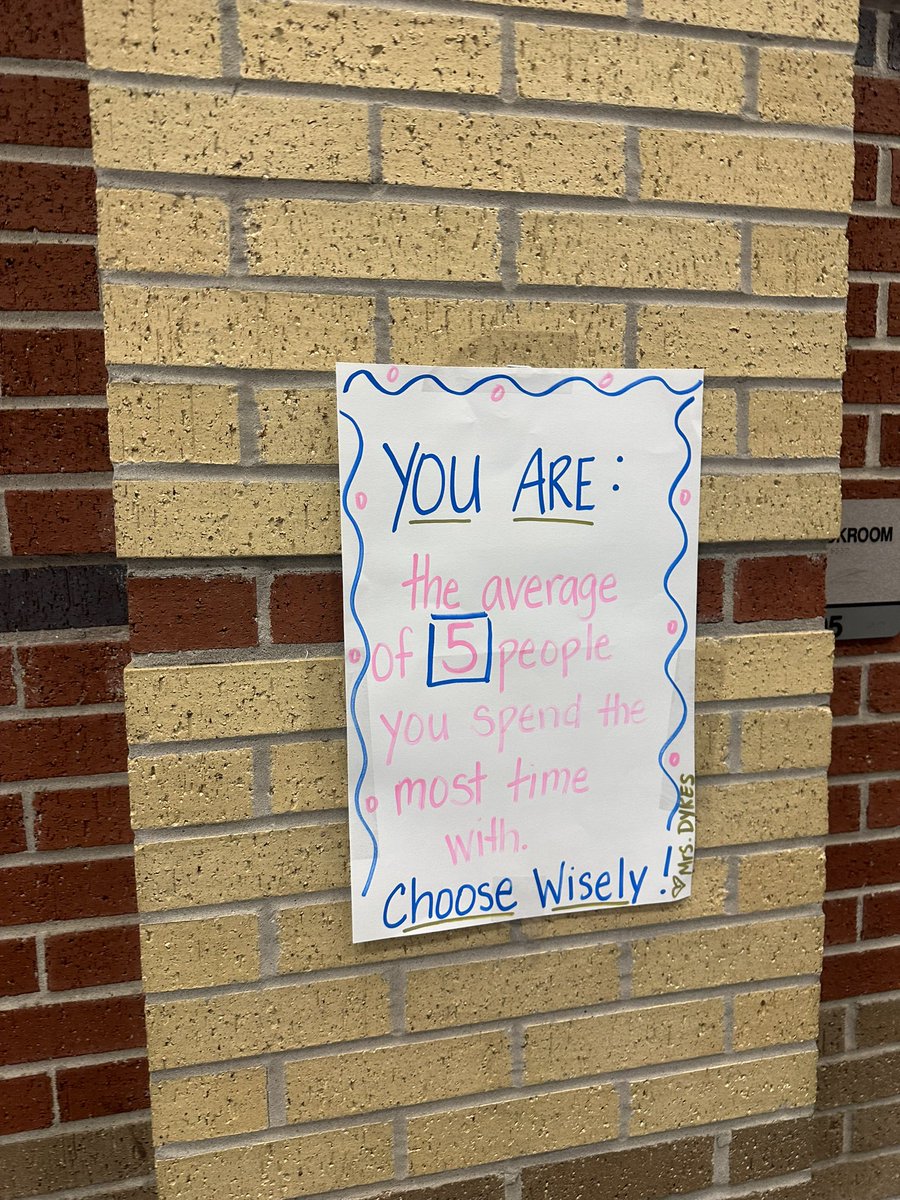 YOU ARE:
the average
of 5 people
you spend the
most time
with.
Choose Wisely!
♡ Mrs. DYKES
KROOM
5